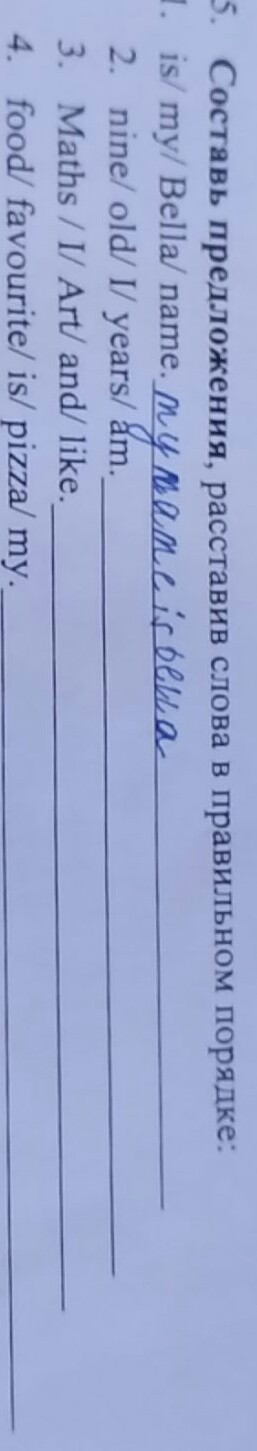 5. Составь предложения, расставив слова в правильном порядке:
1. is/ my/ Bella/ name. my name is bella
2. nine/ old/ I/ years/ am.
3. Maths / I/ Art/ and/ like.
4. food/ favourite/ is/ pizza/ my.